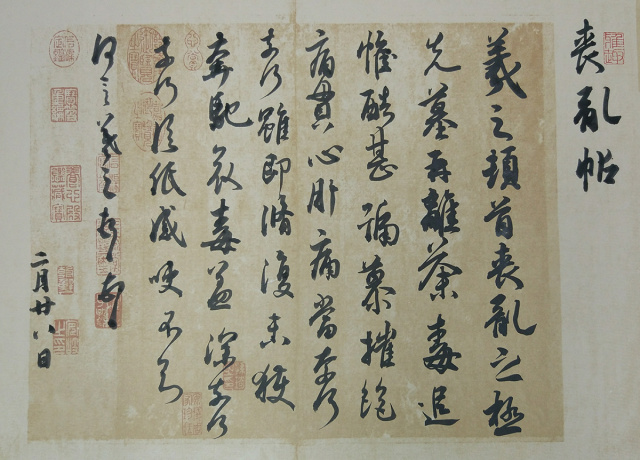 喪亂帖
羲之頓首喪亂之極
先墓再離荼毒追
惟酷甚號慕摧絕
痛貫心肝痛當奈何
奈何雖即脩復未獲
奔馳哀毒益深奈何
奈何臨紙感哽不知
何言羲之頓首頓首
二月廿八日